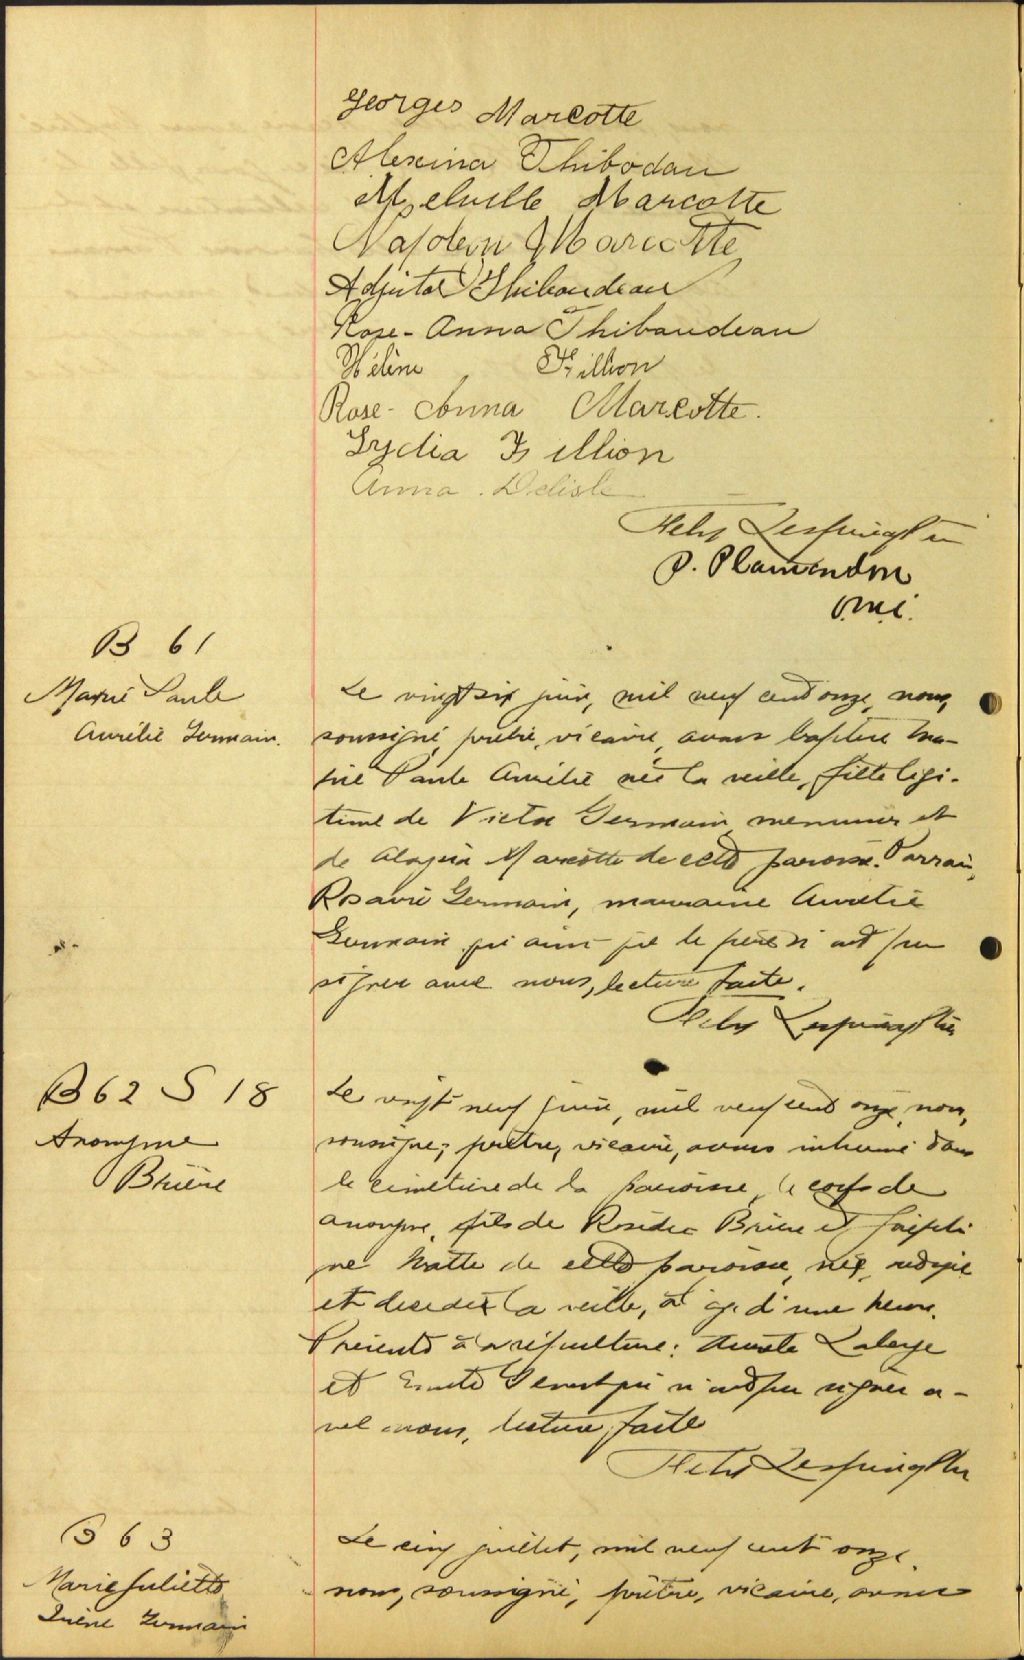 Georges Marcotte
Alexina Thibodau
Melville Marcotte
Napoleon Marcotte
Adjutor Thibaudeau
Rose-Anna Thibaudeau
Hélène Fillion
Rose-Anna Marcotte.
Lydia Fillion
Anna Delisle
P. Plamondon
o.m.i.
B 61
Marie Paule
Aurélie Germain.
Le vingt six juin, mil neuf cent onze, nous,
soussigné, prêtre, vicaire, avons baptisé Ma-
rie Paule Aurélie née la veille, fille légi-
time de Victor Germain, menuisier et
de Marcotte de cette paroisse. Parrain,
Rosario Germain, marraine Aurélie
Germain qui ainsi que le père n'ont pu
signer avec nous, lecture faite.
B 62 S 18
Anonyme
Brière
Le vingt neuf juin, mil neuf cent onze, nous,
soussigné, prêtre, vicaire, avons inhumé dans
le cimetière de la paroisse, le corps de
anonyme, fils de Brière et Joséphi
ne Matte de cette paroisse, né, ondoyé
et décédé la veille, à l'âge d'une heure.
Présents à la sépulture:
et qui n'ont pu signer a-
vec nous, lecture faite
B 63
Marie Juliette
Irène Germain
Le cinq juillet, mil neuf cent onze,
nous, soussigné, prêtre, vicaire, avons